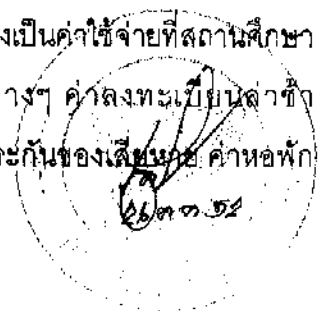 งเป็นค่าใช้จ่ายที่สถานศึกษา
างๆ ค่าลงทะเบียนล่าช้า
ะกันของเสียหาย ค่าหอพัก